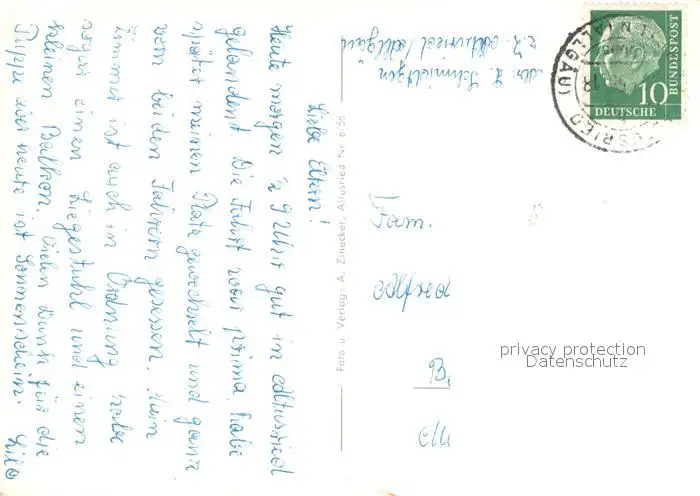 Liebe Eltern!
Heute morgen ½ 9 Uhr gut in Altusried
gelandet. Die Fahrt war prima, habe
später meinen Platz gewechselt und ganz
von beiden Fahrern gesessen. Mein
Zimmer ist auch in Ordnung habe
sogar einen Liegestuhl und einen
kleinen Balkon. Vielen Dank für die
aber heute ist Sonnenschein.
Foto u. Verlag: A. Zinecker, Altusried Nr. 6/58
z. Z. Altusried/Allgäu
Fam.
Alfred
B
M
DEUTSCHE BUNDESPOST
10
ALTUSRIED (ALLGÄU)
privacy protection
Datenschutz